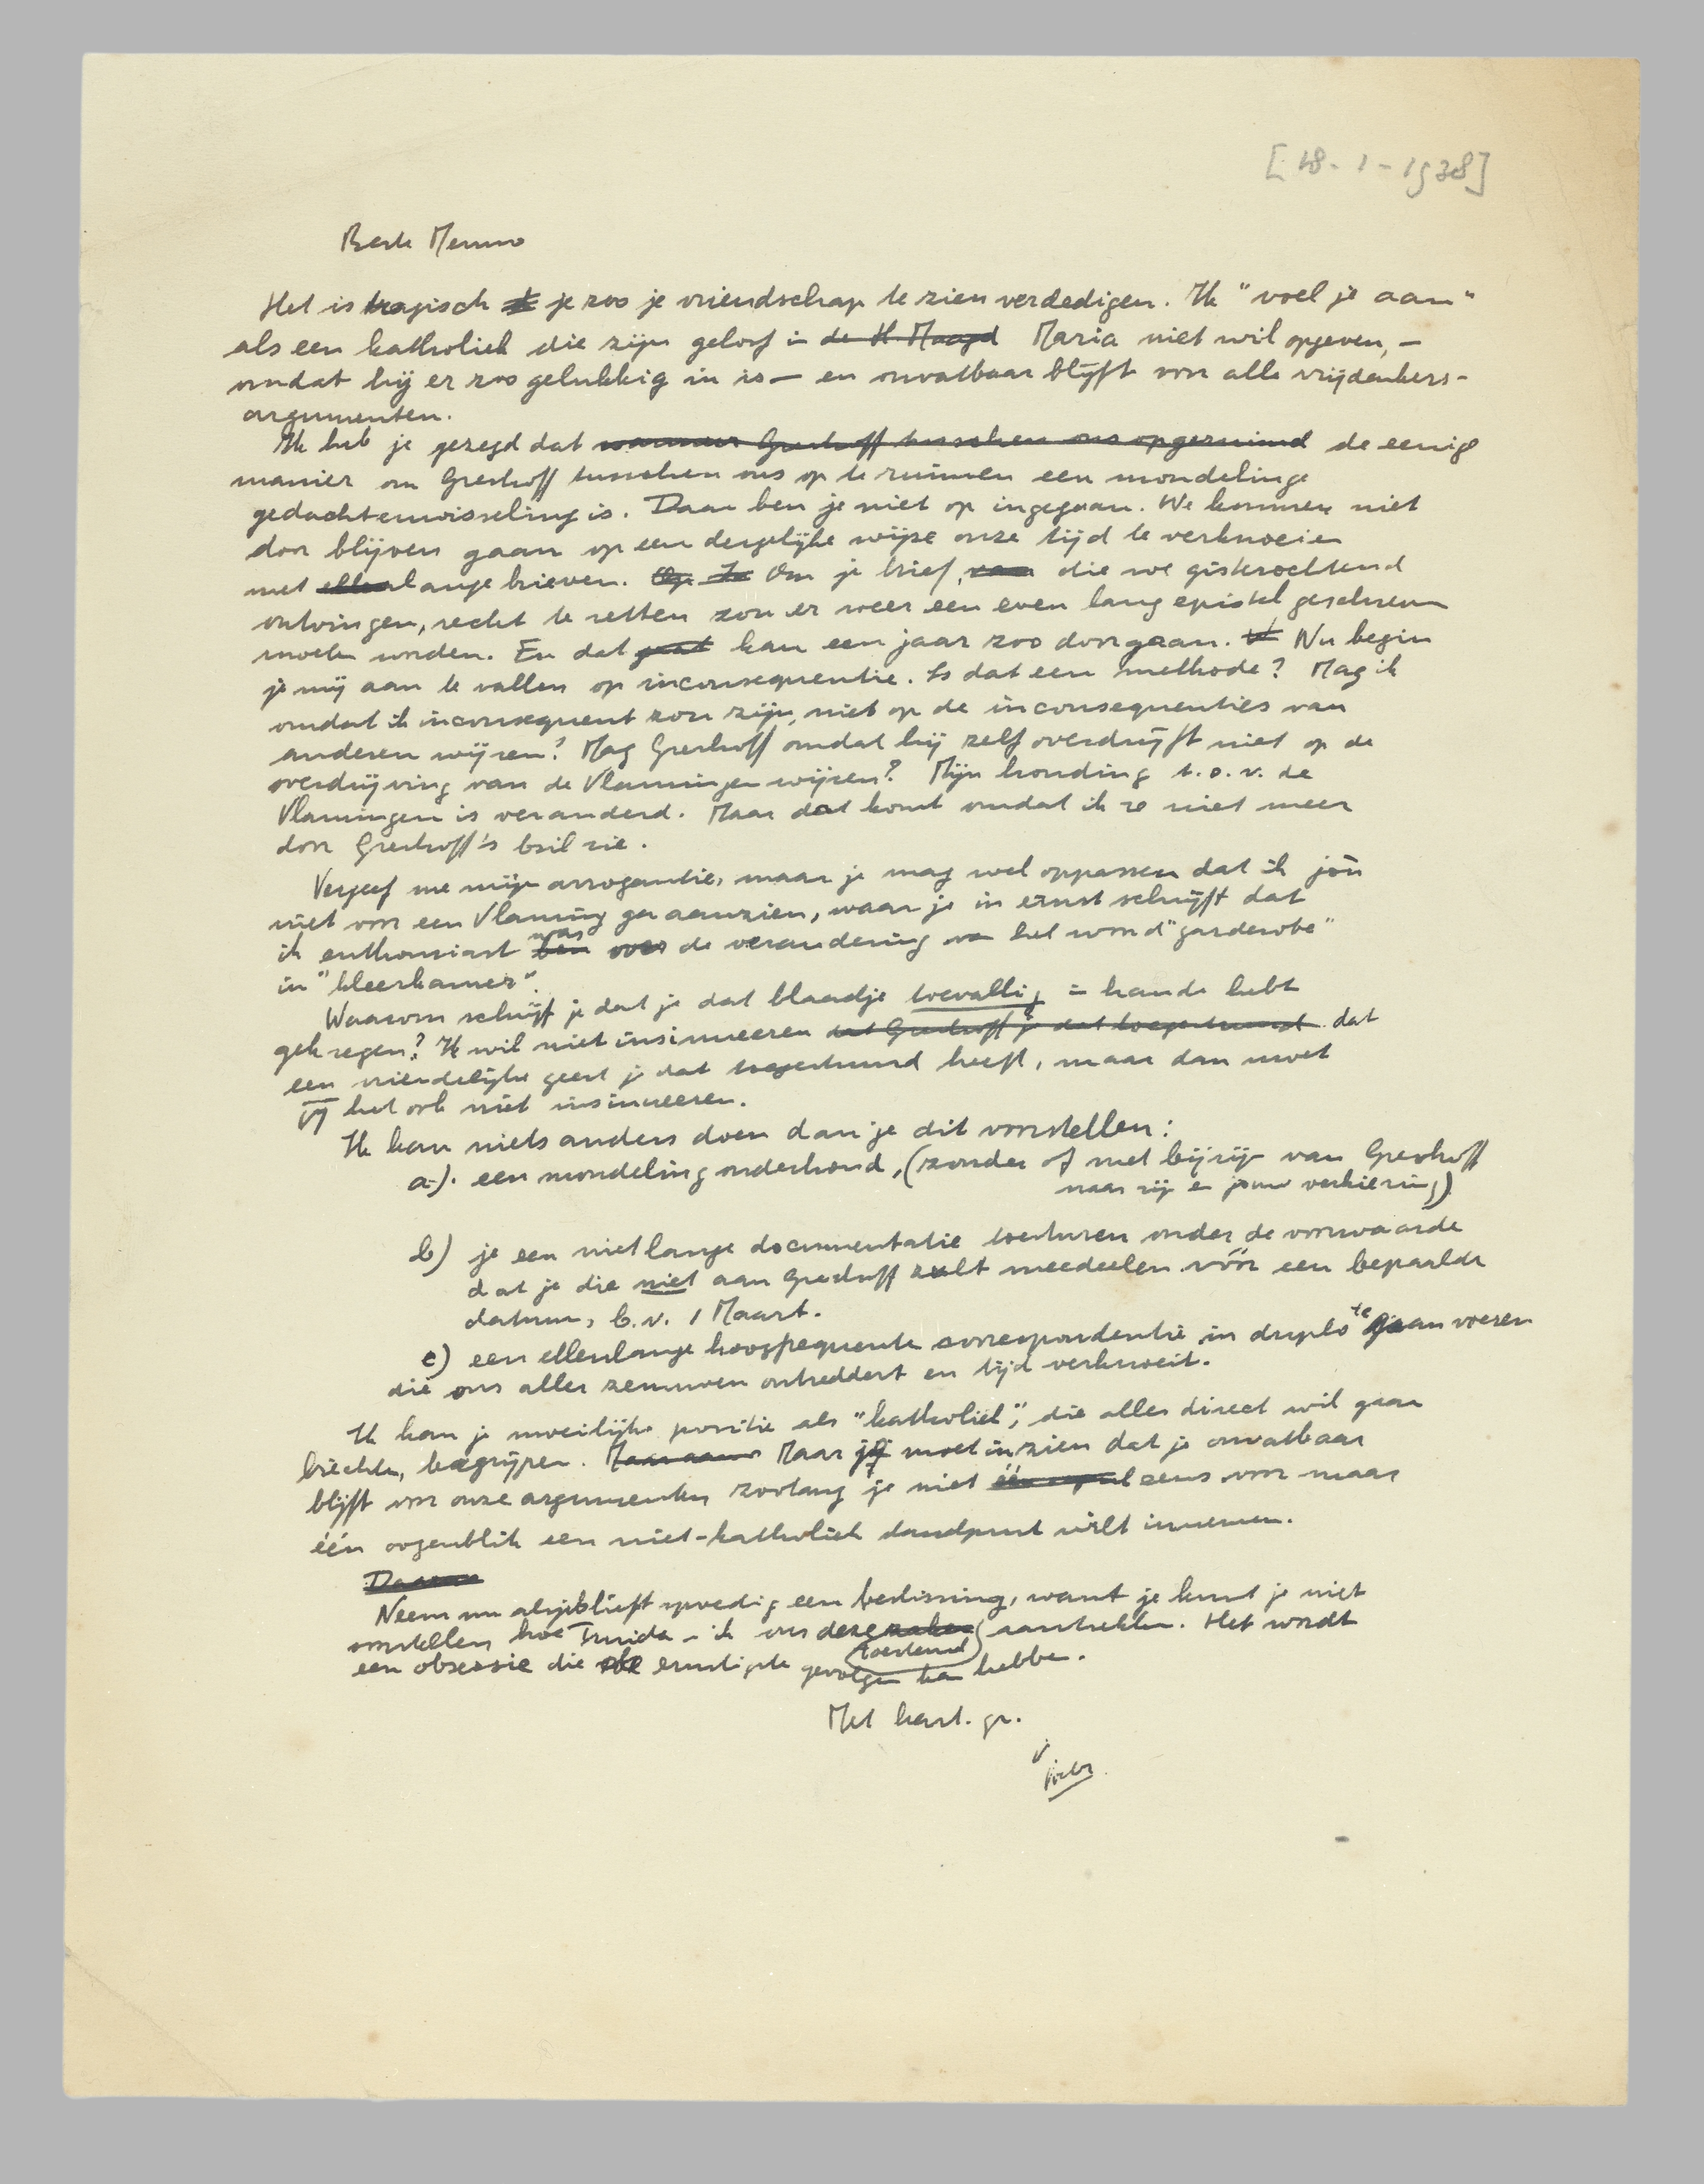 [18-1-1938]
Beste Menno
Het is tragisch je zoo je vriendschap te zien verdedigen. Ik "voel je aan"
als een katholiek die zijn geloof in de H. Maagd Maria niet wil opgeven, —
omdat hij er zoo gelukkig in is — en onvatbaar blijft voor alle vrijdenkers-
argumenten.
Ik heb je gezegd dat wanneer Greshoff tusschen ons opgeruimd de eenige
manier om Greshoff tusschen ons op te ruimen een mondelinge
gedachtenwisseling is. Daar ben je niet op ingegaan. We kunnen niet
door blijven gaan op een dergelijke wijze onze tijd te verknoeien
met ellenlange brieven. Om je brief, van die we gisterochtend
ontvingen, recht te zetten zou er weer een even lang epistel geschreven
moeten worden. En dat gaat kan een jaar zoo doorgaan. Nu begin
je mij aan te vallen op inconsequentie. Is dat een methode? Mag ik
omdat ik inconsequent zou zijn, niet op de inconsequenties van
anderen wijzen? Mag Greshoff omdat hij zelf overdrijft niet op de
overdrijving van de Vlamingen wijzen? Mijn houding t.o.v. de
Vlamingen is veranderd. Maar dat komt omdat ik ze niet meer
door Greshoff's bril zie.
Vergeef me mijn arrogantie, maar je mag wel oppassen dat ik jou
niet voor een Vlaming ga aanzien, waar je in ernst schrijft dat
ik enthousiast ben was over de verandering van het woord "garderobe"
in "kleerkamer".
Waarom schrijf je dat je dat blaadje toevallig in handen hebt
gekregen? Ik wil niet insinueeren dat Greshoff je dat toegestuurd dat
een vriendelijke geest je dat toegestuurd heeft, maar dan moet
jij het ook niet insinueeren.
Ik kan niets anders doen dan je dit voorstellen:
a). een mondeling onderhoud, (zonder of met bijzijn van Greshoff
naar zijn en jouw verkiezing)
b) je een niet lange documentatie toesturen onder de voorwaarde
dat je die niet aan Greshoff zult meedeelen vóór een bepaalde
datum, b.v. 1 Maart.
c) een ellenlange hoogfrequente correspondentie in duplo te gaan voeren
die ons aller zenuwen ontreddert en tijd verknoeit.
Ik kan je moeilijke positie als "katholiek", die alles direct wil gaan
biechten, begrijpen. Maar jij moet inzien dat je onvatbaar
blijft voor onze argumenten zoolang je niet eens voor maar
één oogenblik een niet-katholiek standpunt wilt innemen.
Daarom
Neem nu alsjeblieft spoedig een beslissing, want je kunt je niet
voorstellen hoe Truida en ik ons deze zaken toestand aantrekken. Het wordt
een obsessie die de ernstigste gevolgen kan hebben.
Met hart. gr.